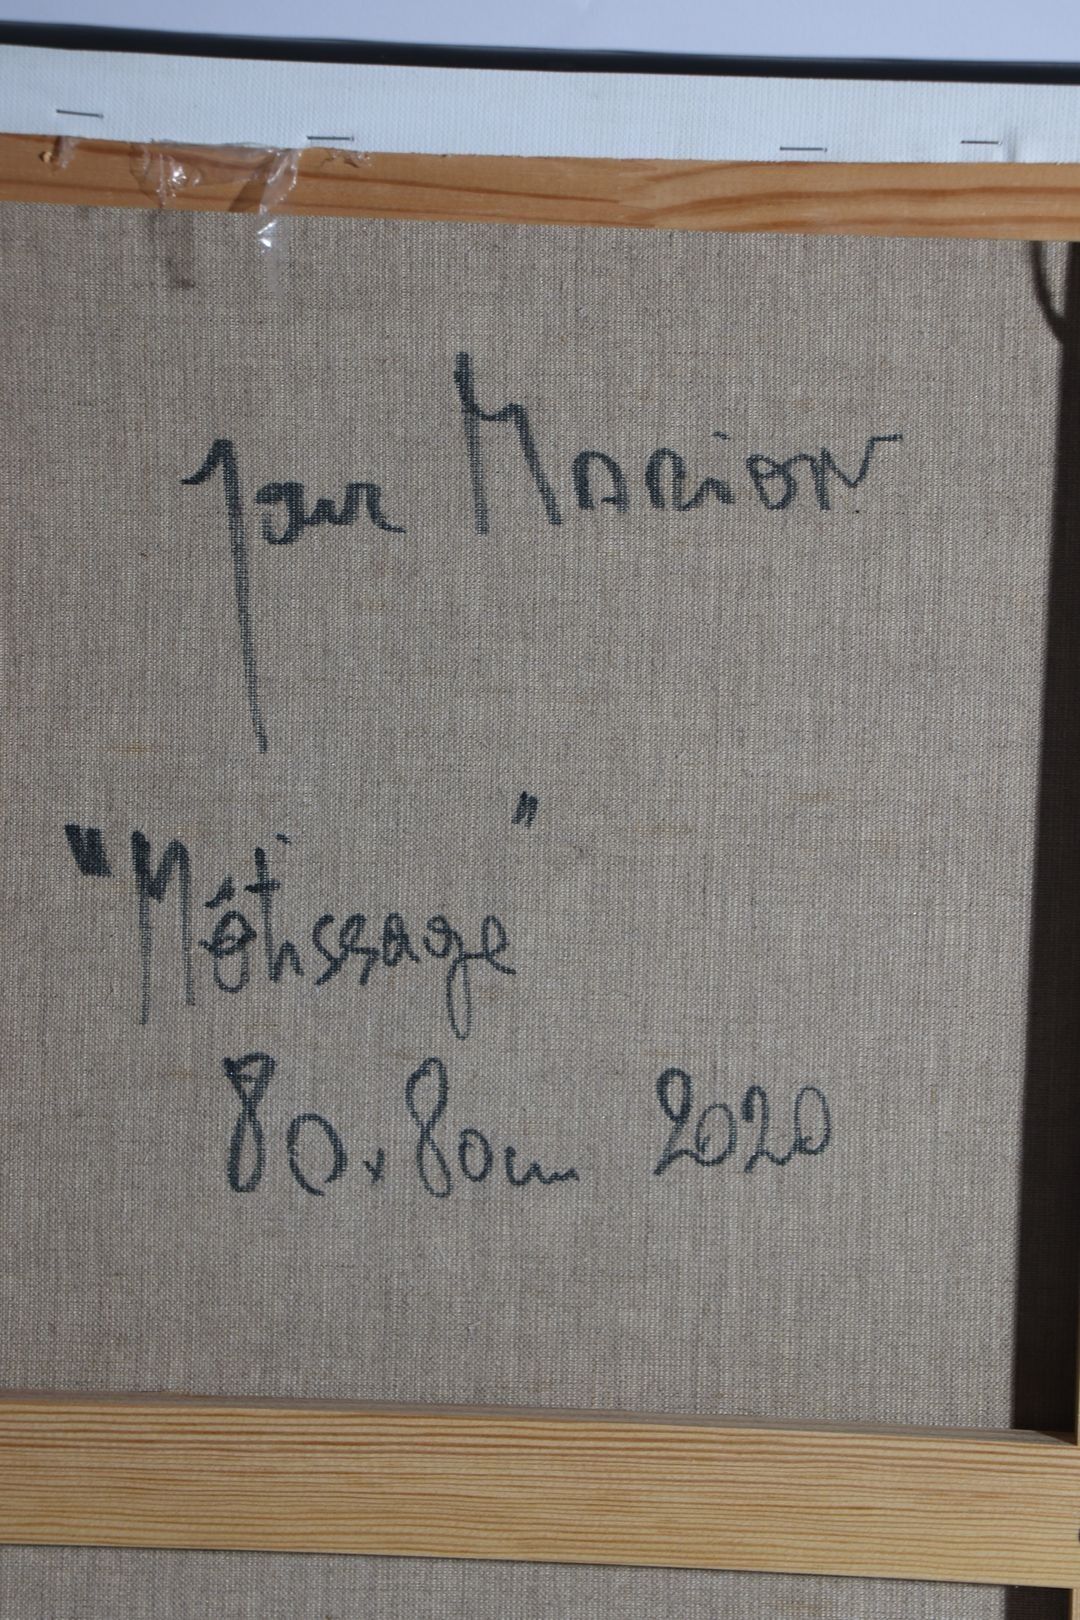 pour MARiON
"Métissage"
80x80cm 2020